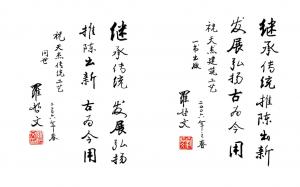 继承传统推陈出新
发展弘扬古为今用
祝天杰建筑工艺
一书出版
二〇〇六年之春
羅哲文
继承传统 发展弘扬
推陈出新 古为今用
祝天杰传统工艺
问世
二〇〇六年春
羅哲文